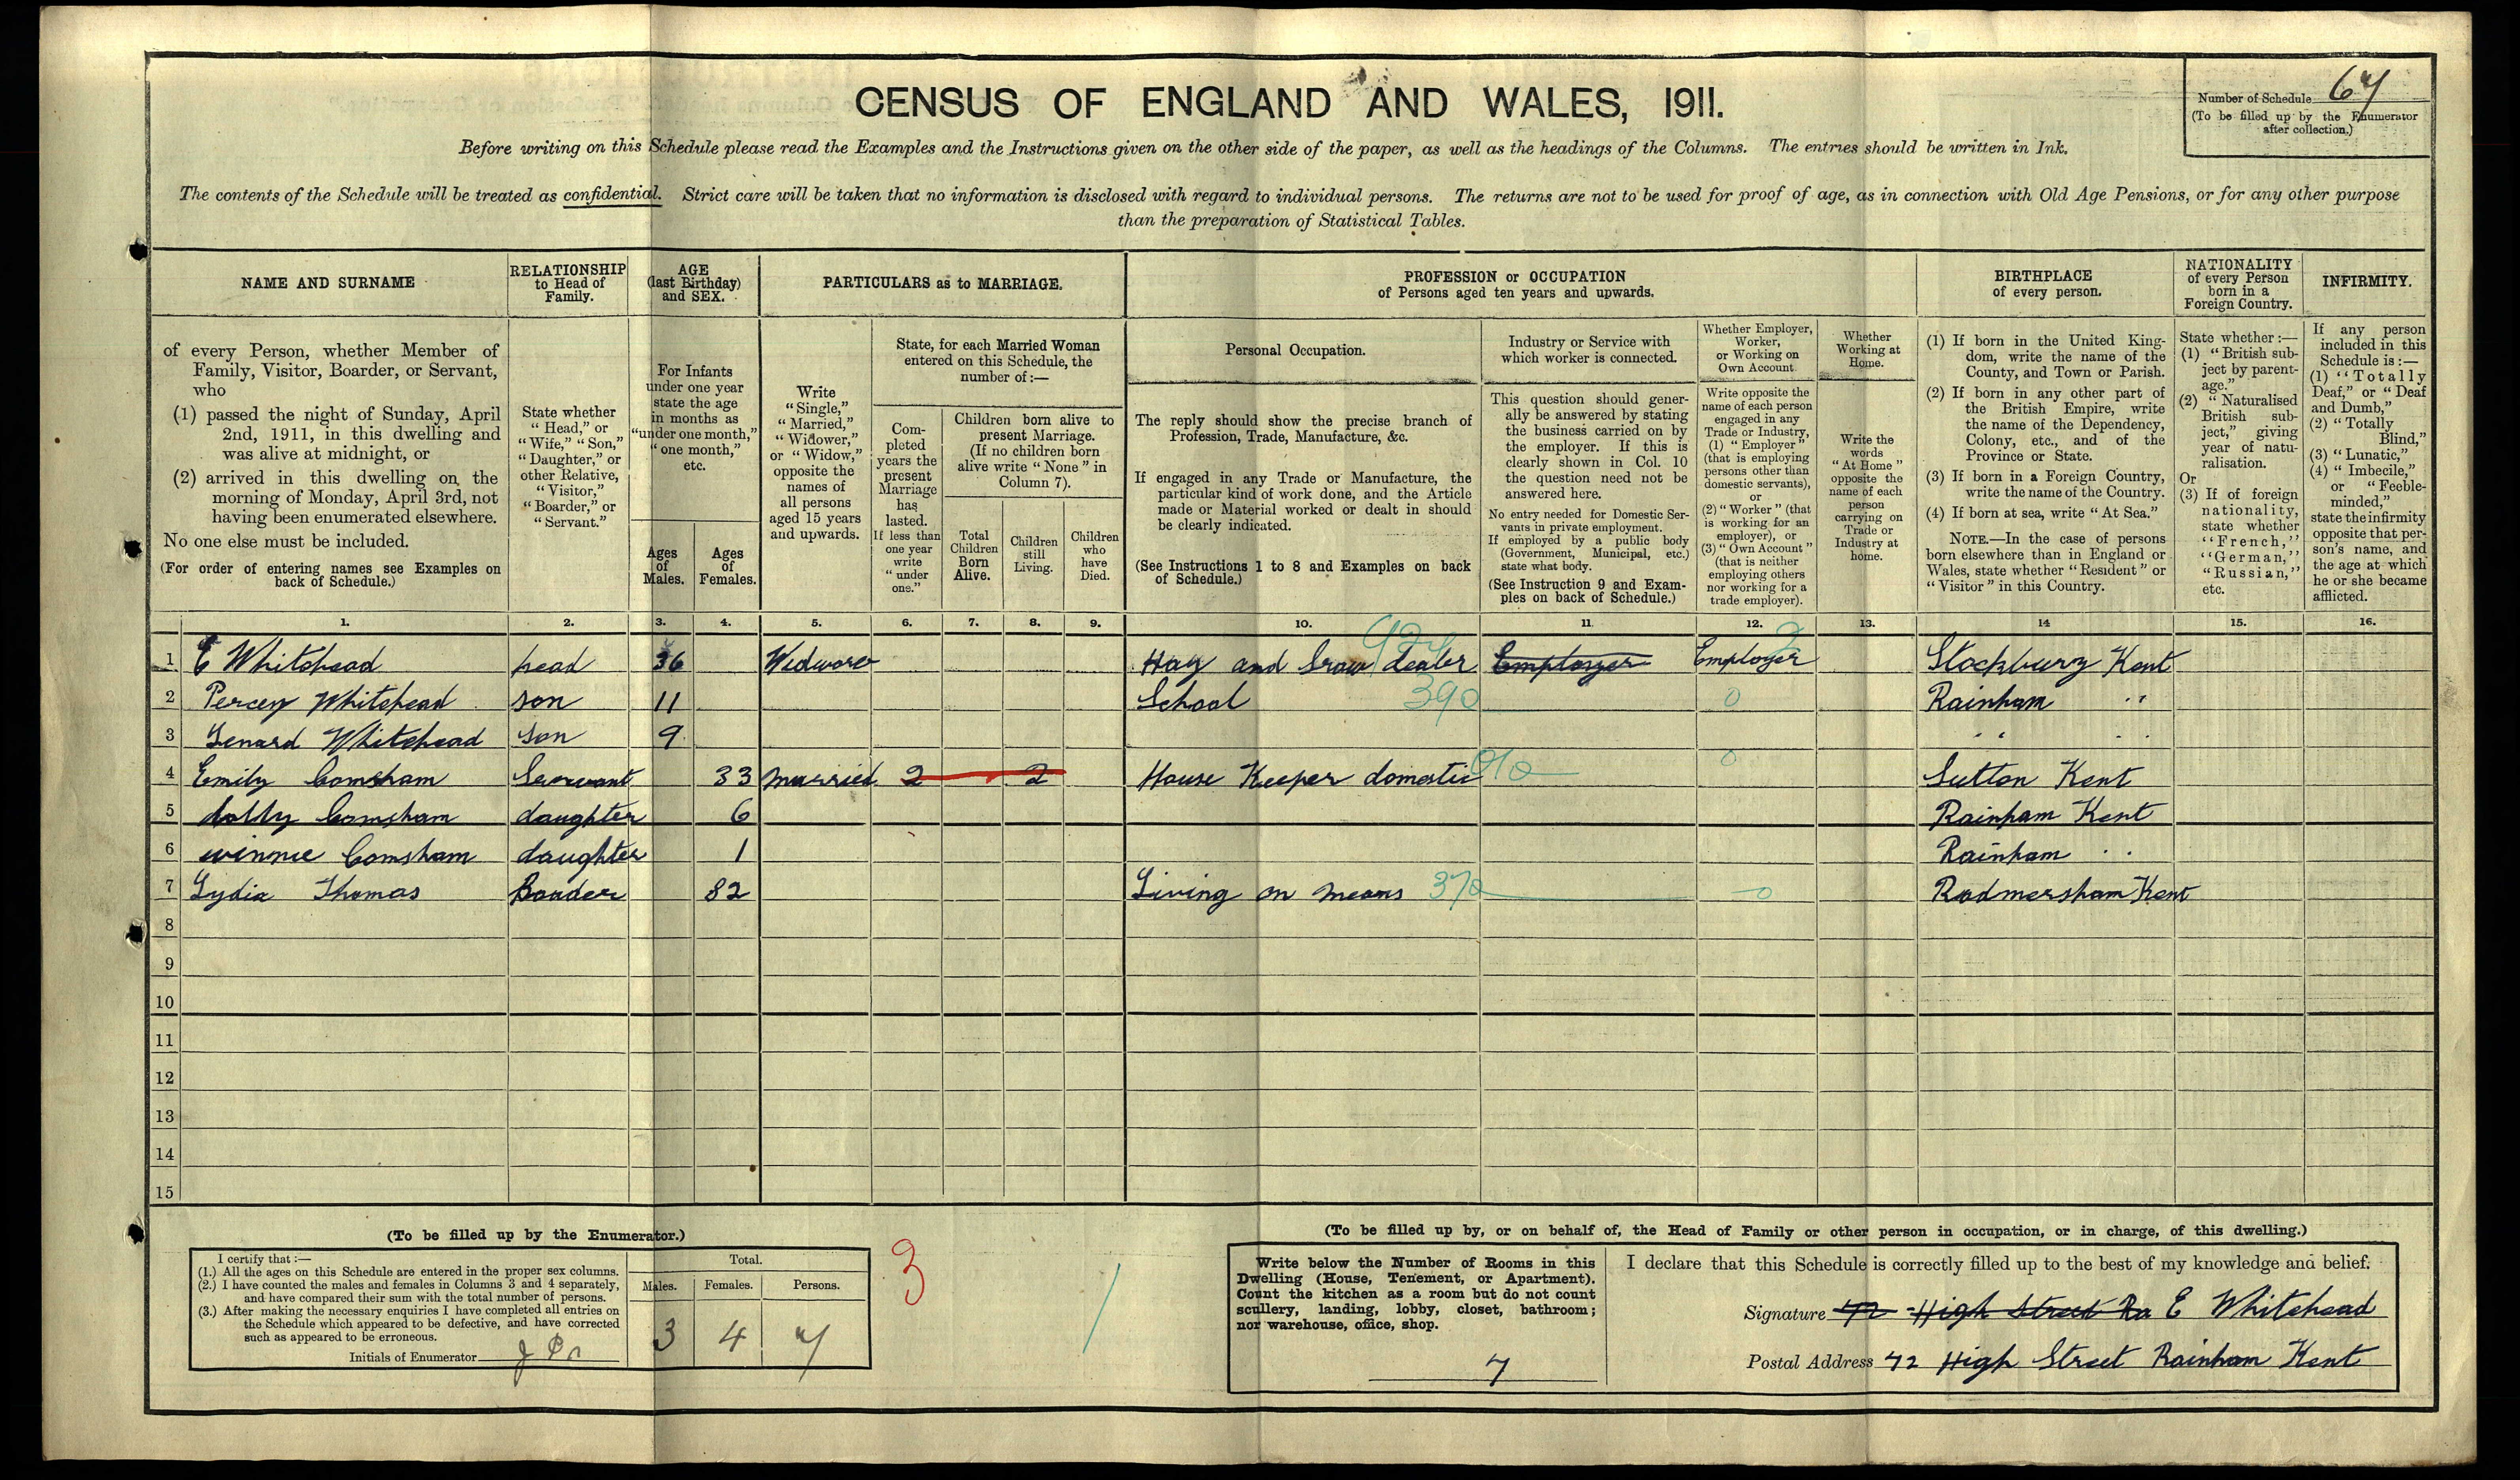 CENSUS OF ENGLAND AND WALES, 1911.
Number of Schedule 67
(To be filled up by the Enumerator after collection.)
Before writing on this Schedule please read the Examples and the Instructions given on the other side of the paper, as well as the headings of the Columns. The entries should be written in Ink.
The contents of the Schedule will be treated as confidential. Strict care will be taken that no information is disclosed with regard to individual persons. The returns are not to be used for proof of age, as in connection with Old Age Pensions, or for any other purpose
than the preparation of Statistical Tables.
NAME AND SURNAME
of every Person, whether Member of
Family, Visitor, Boarder, or Servant,
who
(1) passed the night of Sunday, April
2nd, 1911, in this dwelling and
was alive at midnight, or
(2) arrived in this dwelling on the
morning of Monday, April 3rd, not
having been enumerated elsewhere.
No one else must be included.
(For order of entering names see Examples on
back of Schedule.)
RELATIONSHIP
to Head of
Family.
State whether
"Head," or
"Wife," "Son,"
"Daughter," or
other Relative,
"Visitor,"
"Boarder," or
"Servant."
AGE
(last Birthday)
and SEX.
For Infants
under one year
state the age
in months as
"under one month,"
"one month,"
etc.
Ages
of
Males.
Ages
of
Females.
PARTICULARS as to MARRIAGE.
Write
"Single,"
"Married,"
"Widower,"
or "Widow,"
opposite the
names of
all persons
aged 15 years
and upwards.
State, for each Married Woman
entered on this Schedule, the
number of:—
Com-
pleted
years the
present
Marriage
has
lasted.
If less than
one year
write
"under
one."
Children born alive to
present Marriage.
(If no children born
alive write "None" in
Column 7).
Total
Children
Born
Alive.
Children
still
Living.
Children
who
have
Died.
PROFESSION or OCCUPATION
of Persons aged ten years and upwards.
Personal Occupation.
The reply should show the precise branch of
Profession, Trade, Manufacture, &c.
If engaged in any Trade or Manufacture, the
particular kind of work done, and the Article
made or Material worked or dealt in should
be clearly indicated.
(See Instructions 1 to 8 and Examples on back
of Schedule.)
Industry or Service with
which worker is connected.
This question should gener-
ally be answered by stating
the business carried on by
the employer. If this is
clearly shown in Col. 10
the question need not be
answered here.
No entry needed for Domestic Ser-
vants in private employment.
If employed by a public body
(Government, Municipal, etc.)
state what body.
(See Instruction 9 and Exam-
ples on back of Schedule.)
Whether Employer,
Worker,
or Working on
Own Account
Write opposite the
name of each person
engaged in any
Trade or Industry,
(1) "Employer"
(that is employing
persons other than
domestic servants),
or
(2) "Worker" (that
is working for an
employer), or
(3) "Own Account"
(that is neither
employing others
nor working for a
trade employer).
Whether
Working at
Home.
Write the
words
"At Home"
opposite the
name of each
person
carrying on
Trade or
Industry at
home.
BIRTHPLACE
of every person.
(1) If born in the United King-
dom, write the name of the
County, and Town or Parish.
(2) If born in any other part of
the British Empire, write
the name of the Dependency,
Colony, etc., and of the
Province or State.
(3) If born in a Foreign Country,
write the name of the Country.
(4) If born at sea, write "At Sea."
NOTE.—In the case of persons
born elsewhere than in England or
Wales, state whether "Resident" or
"Visitor" in this Country.
NATIONALITY
of every Person
born in a
Foreign Country.
State whether:—
(1) "British sub-
ject by parent-
age."
(2) "Naturalised
British sub-
ject," giving
year of natu-
ralisation.
Or
(3) If of foreign
nationality,
state whether
"French,"
"German,"
"Russian,"
etc.
INFIRMITY.
If any person
included in this
Schedule is:—
(1) "Totally
Deaf," or "Deaf
and Dumb,"
(2) "Totally
Blind,"
(3) "Lunatic,"
(4) "Imbecile,"
or "Feeble-
minded,"
state the infirmity
opposite that per-
son's name, and
the age at which
he or she became
afflicted.
1. 2. 3. 4. 5. 6. 7. 8. 9. 10. 11. 12. 13. 14 15. 16.
1 E Whitehead head 36 Widworer Hay and Sraw dealer Employer Employer 2 Stockbury Kent
2 Percey Whitehead son 11 School 390 0 Rainham "
3 Lenard Whitehead son 9 " "
4 Emily Comsham Servant 33 married 2 2 House Keeper domestic 010 0 Sutton Kent
5 dolly Comsham daughter 6 Rainham Kent
6 winnie Comsham daughter 1 Rainham "
7 Lydia Thomas Boader 82 Living on means 370 0 Rodmersham Kent
8
9
10
11
12
13
14
15
(To be filled up by the Enumerator.)
I certify that:—
(1.) All the ages on this Schedule are entered in the proper sex columns.
(2.) I have counted the males and females in Columns 3 and 4 separately,
and have compared their sum with the total number of persons.
(3.) After making the necessary enquiries I have completed all entries on
the Schedule which appeared to be defective, and have corrected
such as appeared to be erroneous.
Initials of Enumerator
Total.
Males. Females. Persons.
3 4 7
3
(To be filled up by, or on behalf of, the Head of Family or other person in occupation, or in charge, of this dwelling.)
Write below the Number of Rooms in this
Dwelling (House, Tenement, or Apartment).
Count the kitchen as a room but do not count
scullery, landing, lobby, closet, bathroom;
nor warehouse, office, shop.
7
I declare that this Schedule is correctly filled up to the best of my knowledge and belief.
Signature 72 High Street Ra E Whitehead
Postal Address 72 High Street Rainham Kent